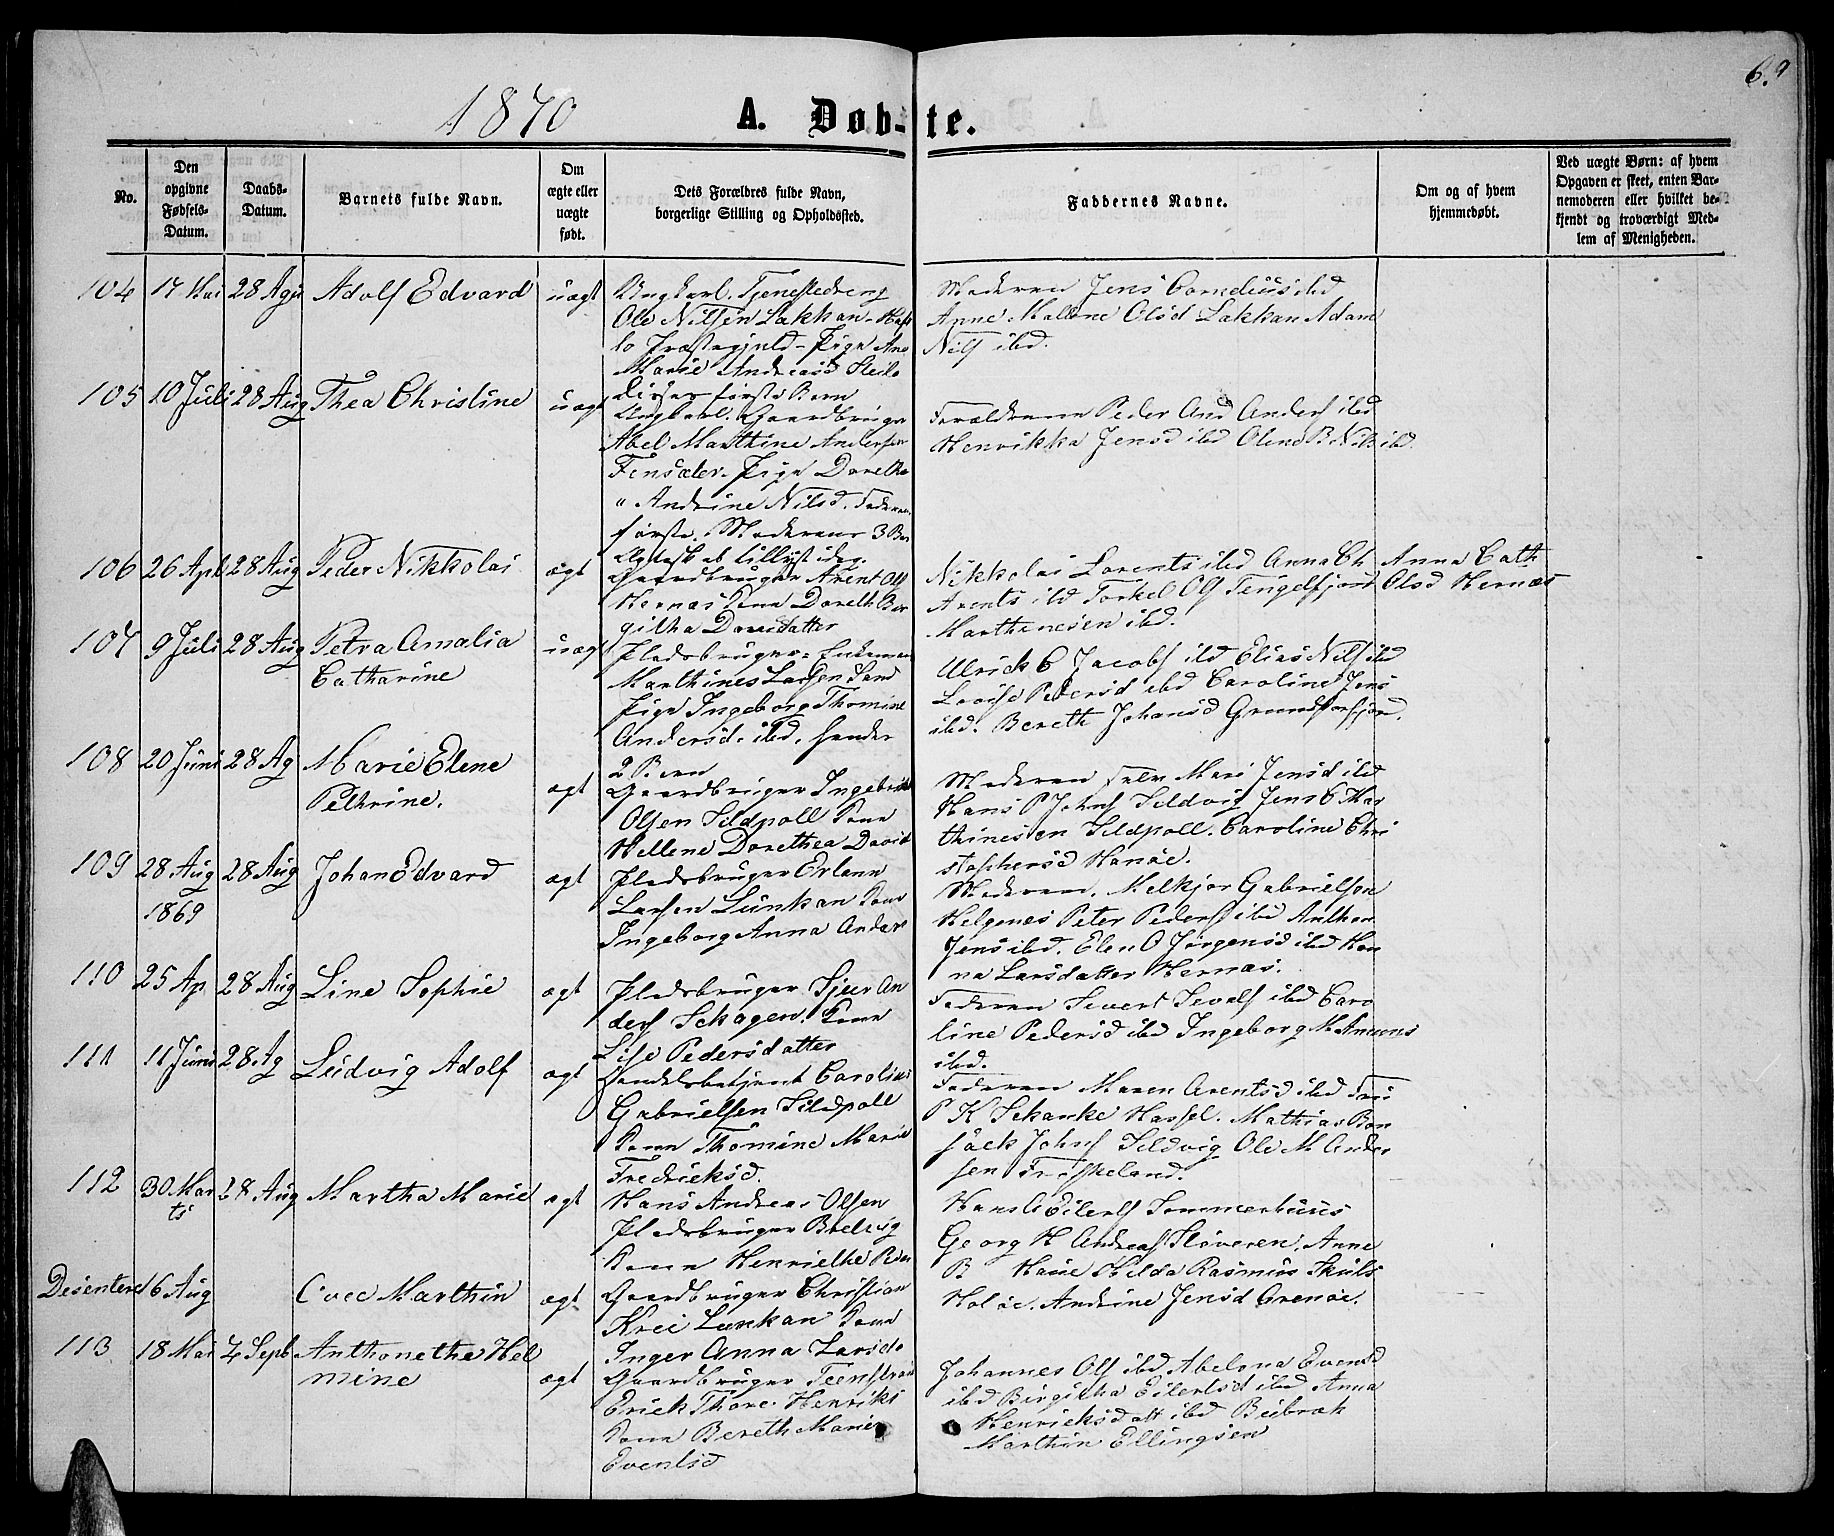 6.9
1870
A. Døb-te.
No.
Den opgivne Fødsels-Datum.
Daabs-Datum.
Barnets fulde Navn.
Om ægte eller uægte født.
Dets Forældres fulde Navn, borgerlige Stilling og Opholdssted.
Faddernes Navne.
Om og af hvem hjemmedøbt.
Ved uægte Børn: af hvem Opgaven er skeet, enten Barnemoderen eller hvilket bekjendt og troværdigt Medlem af Menigheden.
104 17 Mai 28 Agu Adolf Edvard uægt
Ungkarl. Tjenestedreng
Ole Nilsen Lakhan-Hafs
lo Præstegjeld - Pige Ane
Marie Andreasd Steilo
disses første Børn
Moderen Jens Cornelius ibd
Anne Malene Olsd Lakkan Adam
Nils ibd.
105 10 Juli 28 Aug Thea Christine uægt
Ungkarl. Gaardbruger
Abel Marthine Andersen
Finsæter. Pige Dorethe
" Andrine Nilsd. Faderens
første. Moderens 3 Bar
Forældrene Peder And Anders ibd
Henrikka Jensd ibd Oline B Nils ibd.
106 26 Apl 28 Aug Peder Nikkolai ægt
Ægtesk at tillyst idag
Gaardbruger Arent Ols
Hernæs Kone Doreth Bir
githa Davidatter
Nikkolai Lorents ibd Anna Ch
Arents ibd Torkel Ols Tengelfjord
Marthinesen ibd.
Anna Cath
Olsd Hernæs
107 9 Juli 28 Aug Petra Amalia
Catharine uægt
Pladsbruger Enkemand
Marthines Larsen Sand
Pige Ingeborg Thomine
Andersd. ibd. hendes
2 Børn
Ulrick C Jacobs ibd Elias Nils ibd
Lovise Pedersd ibd Caroline Jens
ibd. Bereth Johansd Grundforfjord.
108 20 Juni 28 Ag Marie Elene
Pethrine. ægt
Gaardbruger Ingebrigt
Olsen Sildpoll Kone
Hellene Dorethea David
Moderen selv Mari Jensd ibd
Hans P Johns Sildvig Jens C Mar
thinesen Sildpoll. Caroline Chri
stophersd Hanøe.
109 28 Aug
1869 28 Aug Johan Edvard ægt
Pladsbruger Erlenn
Larsen Lunkan Kone
Ingeborg Anna Anders
Moderen. Melkjor Gabrielsen
Helgenes Peter Peders ibd Anthon
Jens ibd. Elen O Jørgensd ibd Han
na Larsdatter Hernæs.
110 25 Ap 28 Aug Line Sophie ægt
Pladsbruger Sjur An
ders Skogen. Kone
Lise Pedersdatter
Faderen Sivert Sevals ibd Caro
line Pedersd ibd Ingeborg M Amons
ibd.
111 11 Juni 28. Ag Ludvig Adolf ægt
Handelsbetjent Carolius
Gabrielsen Sildpoll
Kone Thomine Marie
Fredriksd.
Faderen Maren Arentsd ibd Fris
P K Schanke Hassel. Mathias Bon
saek Johns Sildvig Ole M Ander
sen Friskeland.
112 30 Mar
ts 28 Aug Martha Marie ægt
Hans Andreas Olsen
Pladsbruger Brelvig
Kone Henriethe Ben
Hans C Eilerts Sommerhuus
Georg H Andreas Sløveren. Anne
B Haue Hilda Rasmus Skuls
Holøe. Andrine Jensd Grenøe.
Desentere 16 Aug Ovee Marthin ægt
Gaardbruger Christian
Krei Lunkan Kone
Inger Anna Larsd
113 18 Mai 4 Sept Anthonetha Hel
mine ægt
Gaardbruger Teenstrøn
Erick Thore Henriks
Kone Bereth Marie
Eventsd
Johannes Ols ibd Abelona Evensd
ibd Birgitha Eilertsd ibd Anna
Henricksdatt ibd Beibrak
Marthin Ellingsen